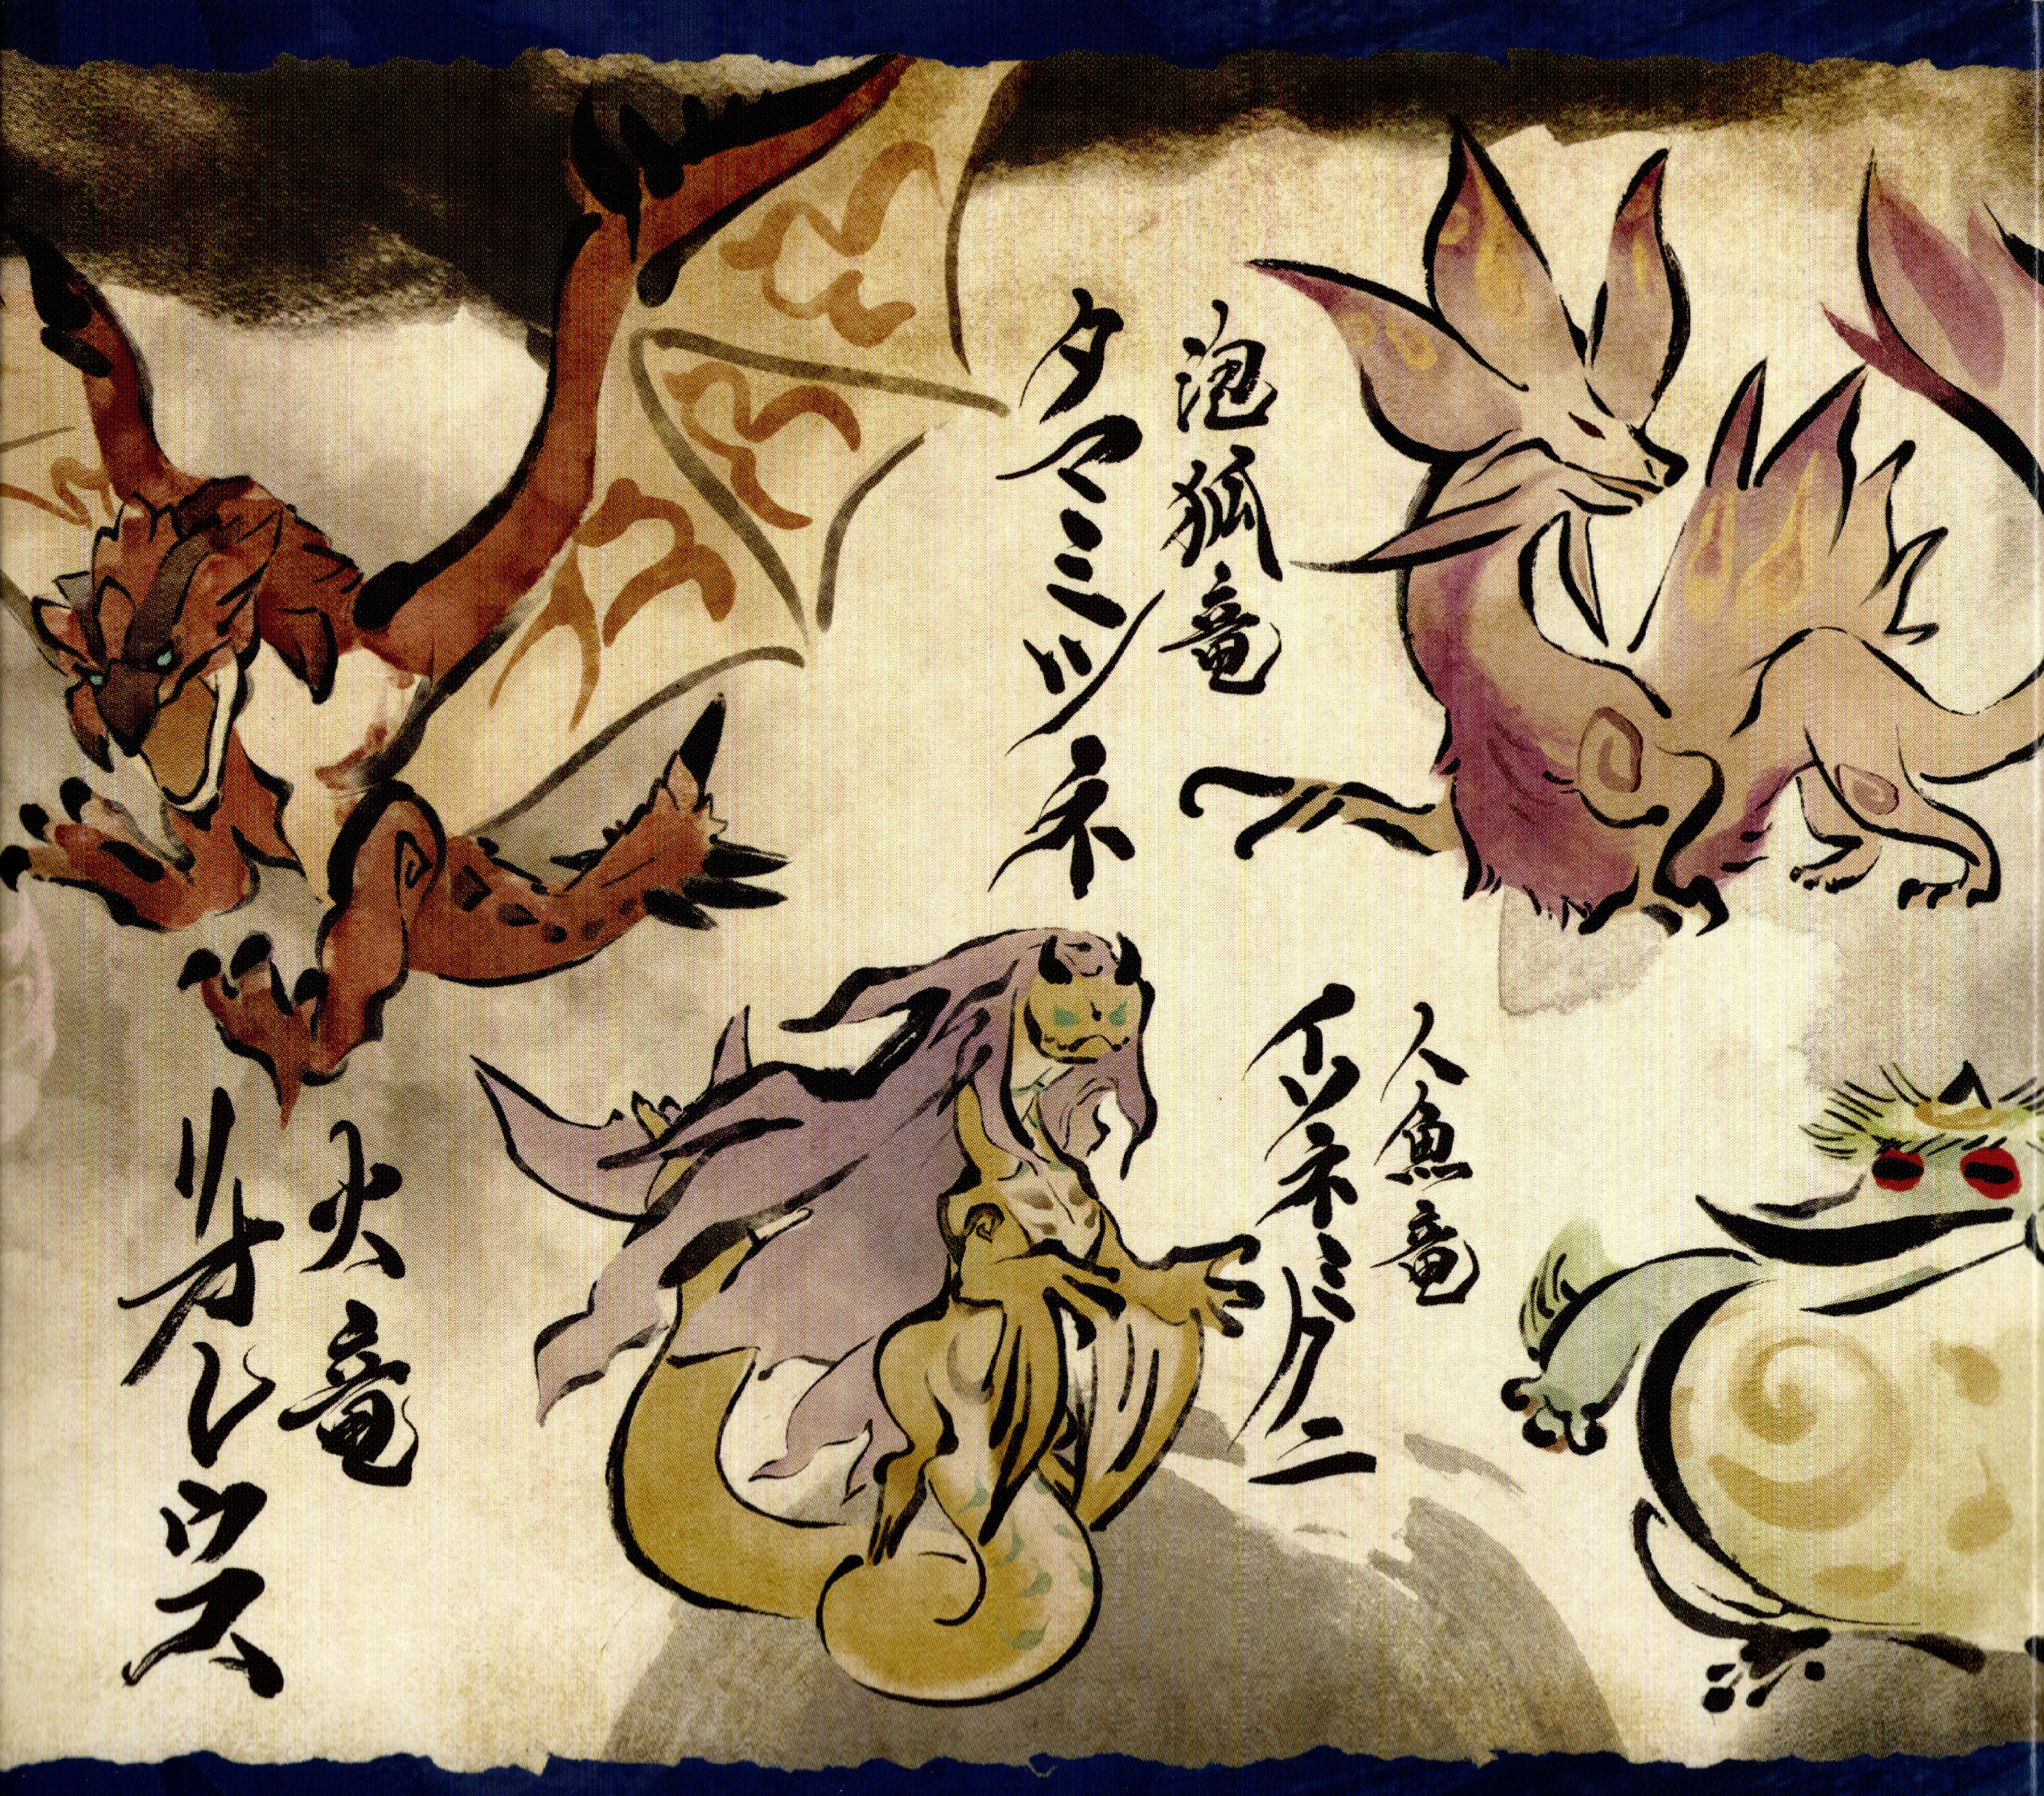 泡狐竜
タマミツネ
人魚竜
イソネミクニ
火竜
リオレウス